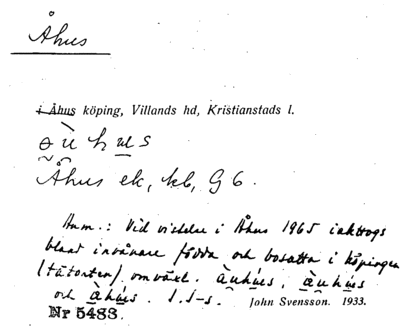 Åhus
i Åhus köping, Villands hd, Kristianstads l.
Åhus ek, kb, G 6.
Anm.: Vid vistelse i Åhus 1965 iakttogs
bland invånare födda och bosatta i köpingen
(tätorten) omväxl.
och S.S-s. John Svensson. 1933.
Nr 5483.